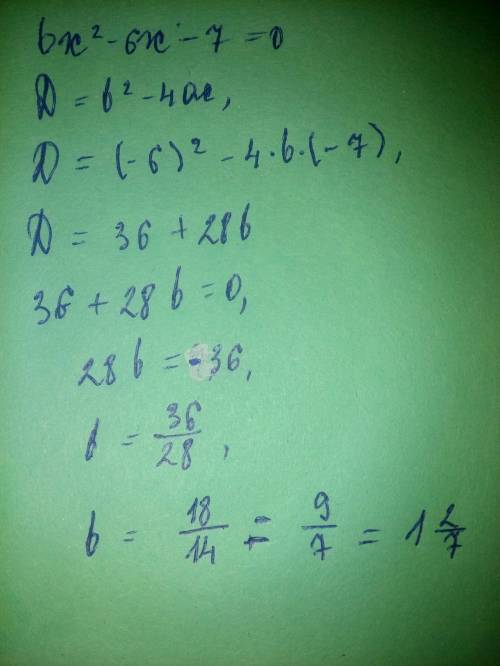 bx² - 6x - 7 = 0
D = b² - 4ac,
D = (-6)² - 4·b·(-7),
D = 36 + 28b
36 + 28b = 0,
28b = -36,
b = 36/28,
b = 18/14 = 9/7 = 1 2/7